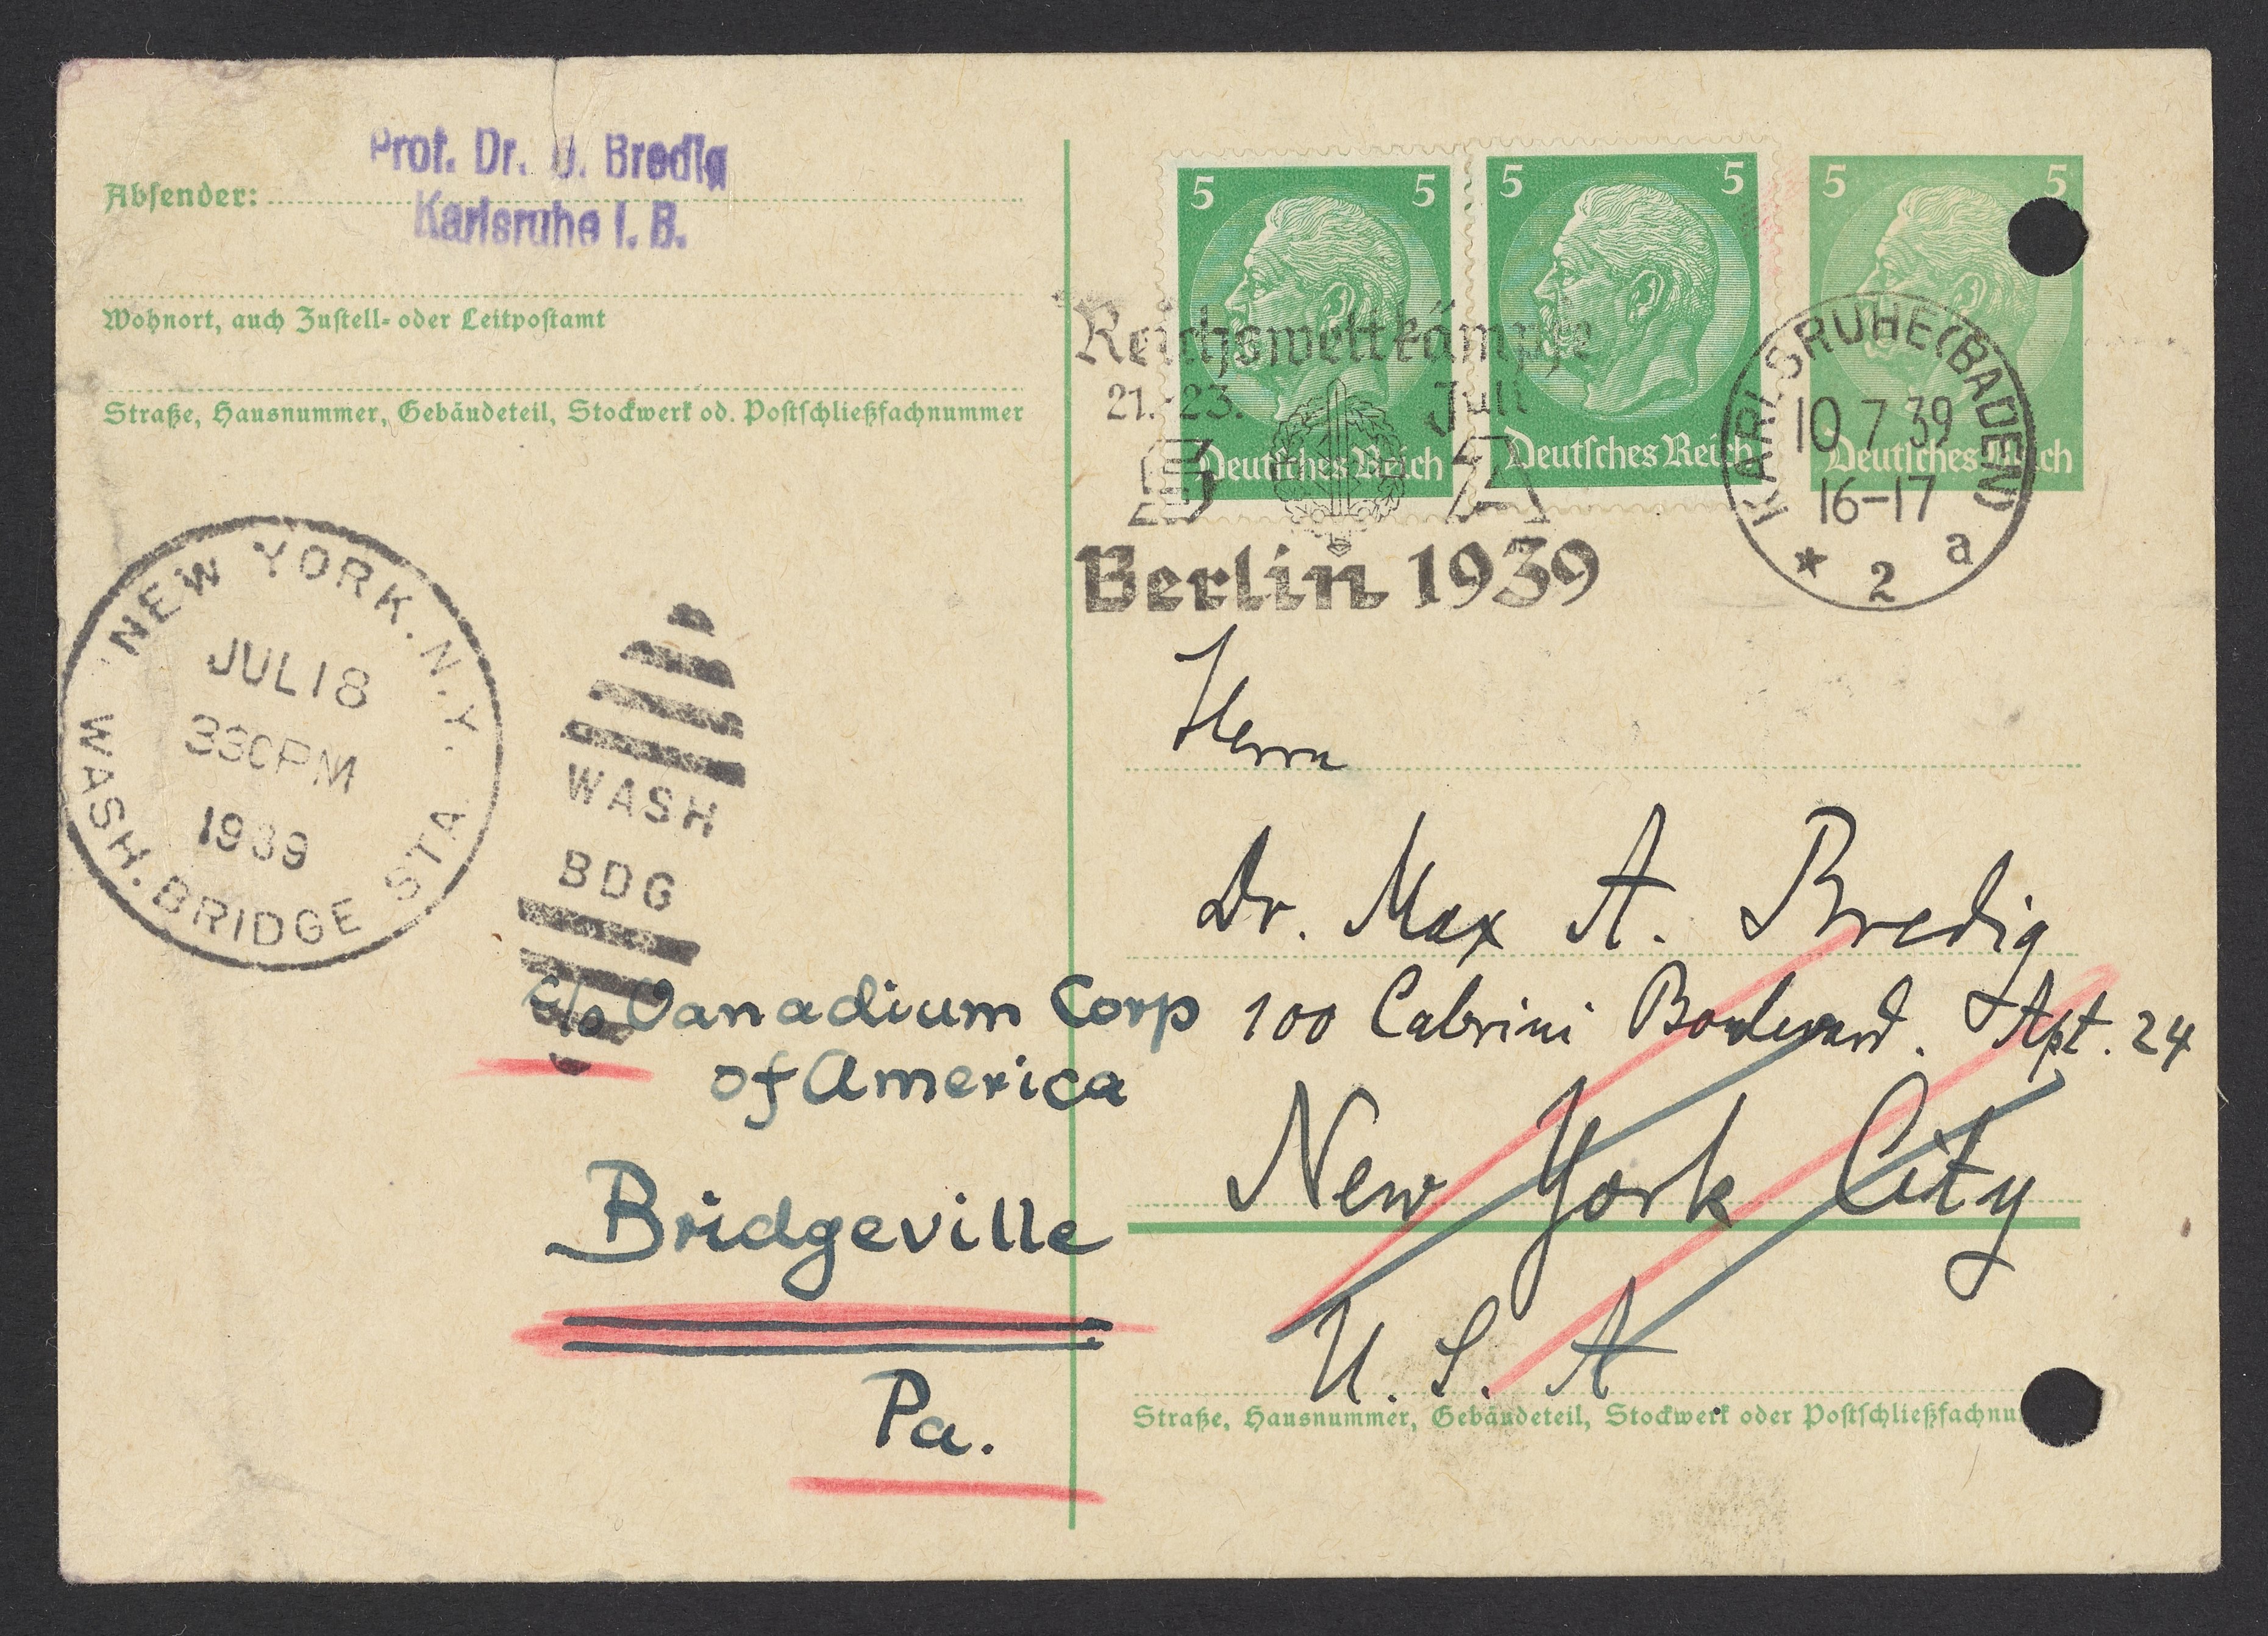 Prof. Dr. G. Bredig
Karlsruhe i. B.
Absender:
Wohnort, auch Zustell- oder Leitpostamt
Straße, Hausnummer, Gebäudeteil, Stockwerk od. Postschließfachnummer
5 5
Deutsches Reich
5 5
Deutsches Reich
5 5
Deutsches Reich
Reichswettkämpfe
21.-23. Juli
der SA
Berlin 1939
KARLSRUHE (BADEN)
10 7 39
16-17
* 2 a
NEW YORK, N.Y.
JUL 18
330PM
1939
WASH. BRIDGE STA
WASH
BDG
Herrn
Dr. Max A. Bredig
100 Cabrini Boulevard. Apt. 24
New York City
U. S. A
c/o Vanadium Corp
of America
Bridgeville
Pa.
Straße, Hausnummer, Gebäudeteil, Stockwerk oder Postschließfachnu